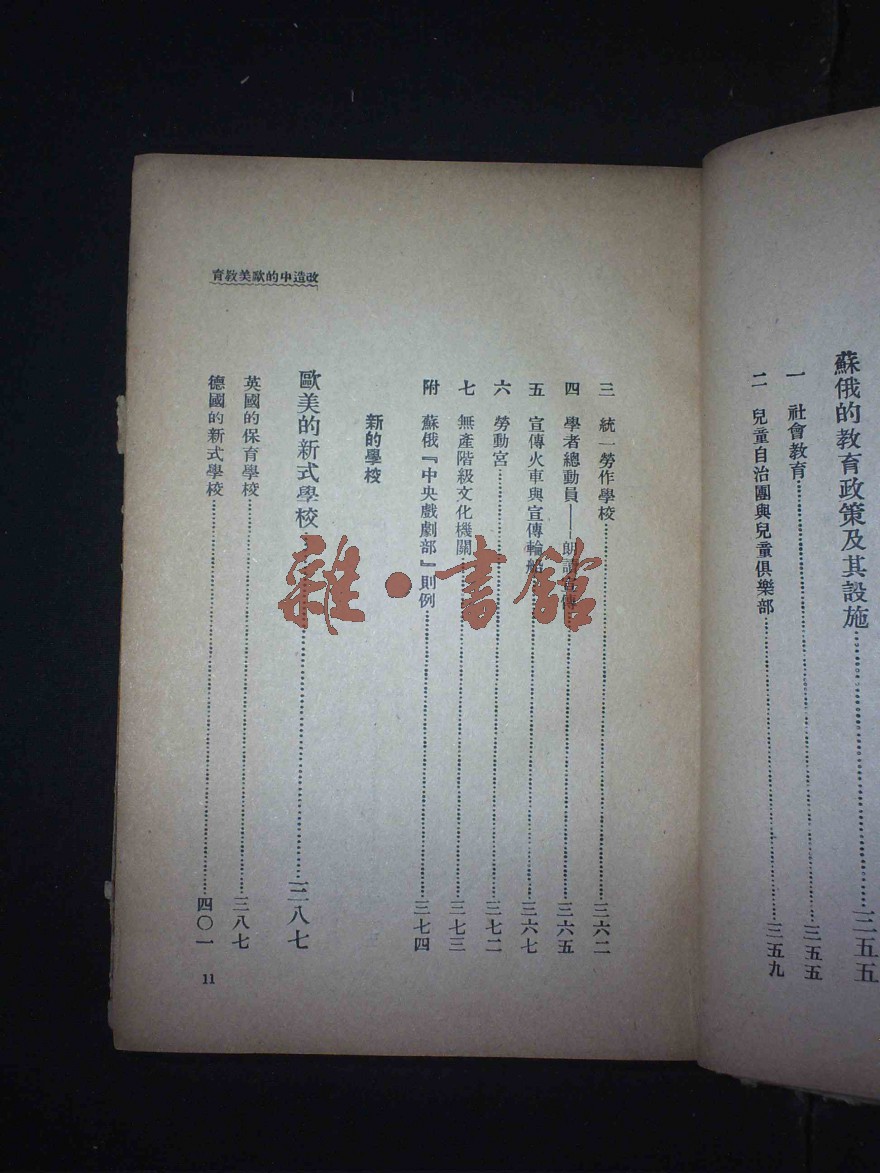 蘇俄的教育政策及其設施……三五五
一 社會教育……三五五
二 兒童自治團與兒童俱樂部……三五九
改造中的歐美教育
三 統一勞作學校……三六二
四 學者總動員——朗讀宣傳……三六五
五 宣傳火車與宣傳輪船……三六七
六 勞動宮……三七二
七 無產階級文化機關……三七三
附 蘇俄『中央戲劇部』則例……三七四
新的學校
歐美的新式學校……三八七
英國的保育學校……三八七
德國的新式學校……四〇一
11
雜·書館